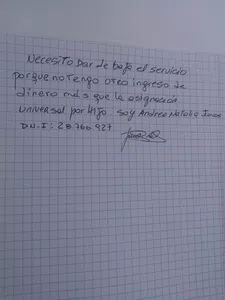 Necesito Dar de baja el servicio
porque no tengo otro ingreso de
dinero más que la asignación
universal por Hijo. soy Andrea Natalia
D.N.I: 28766927